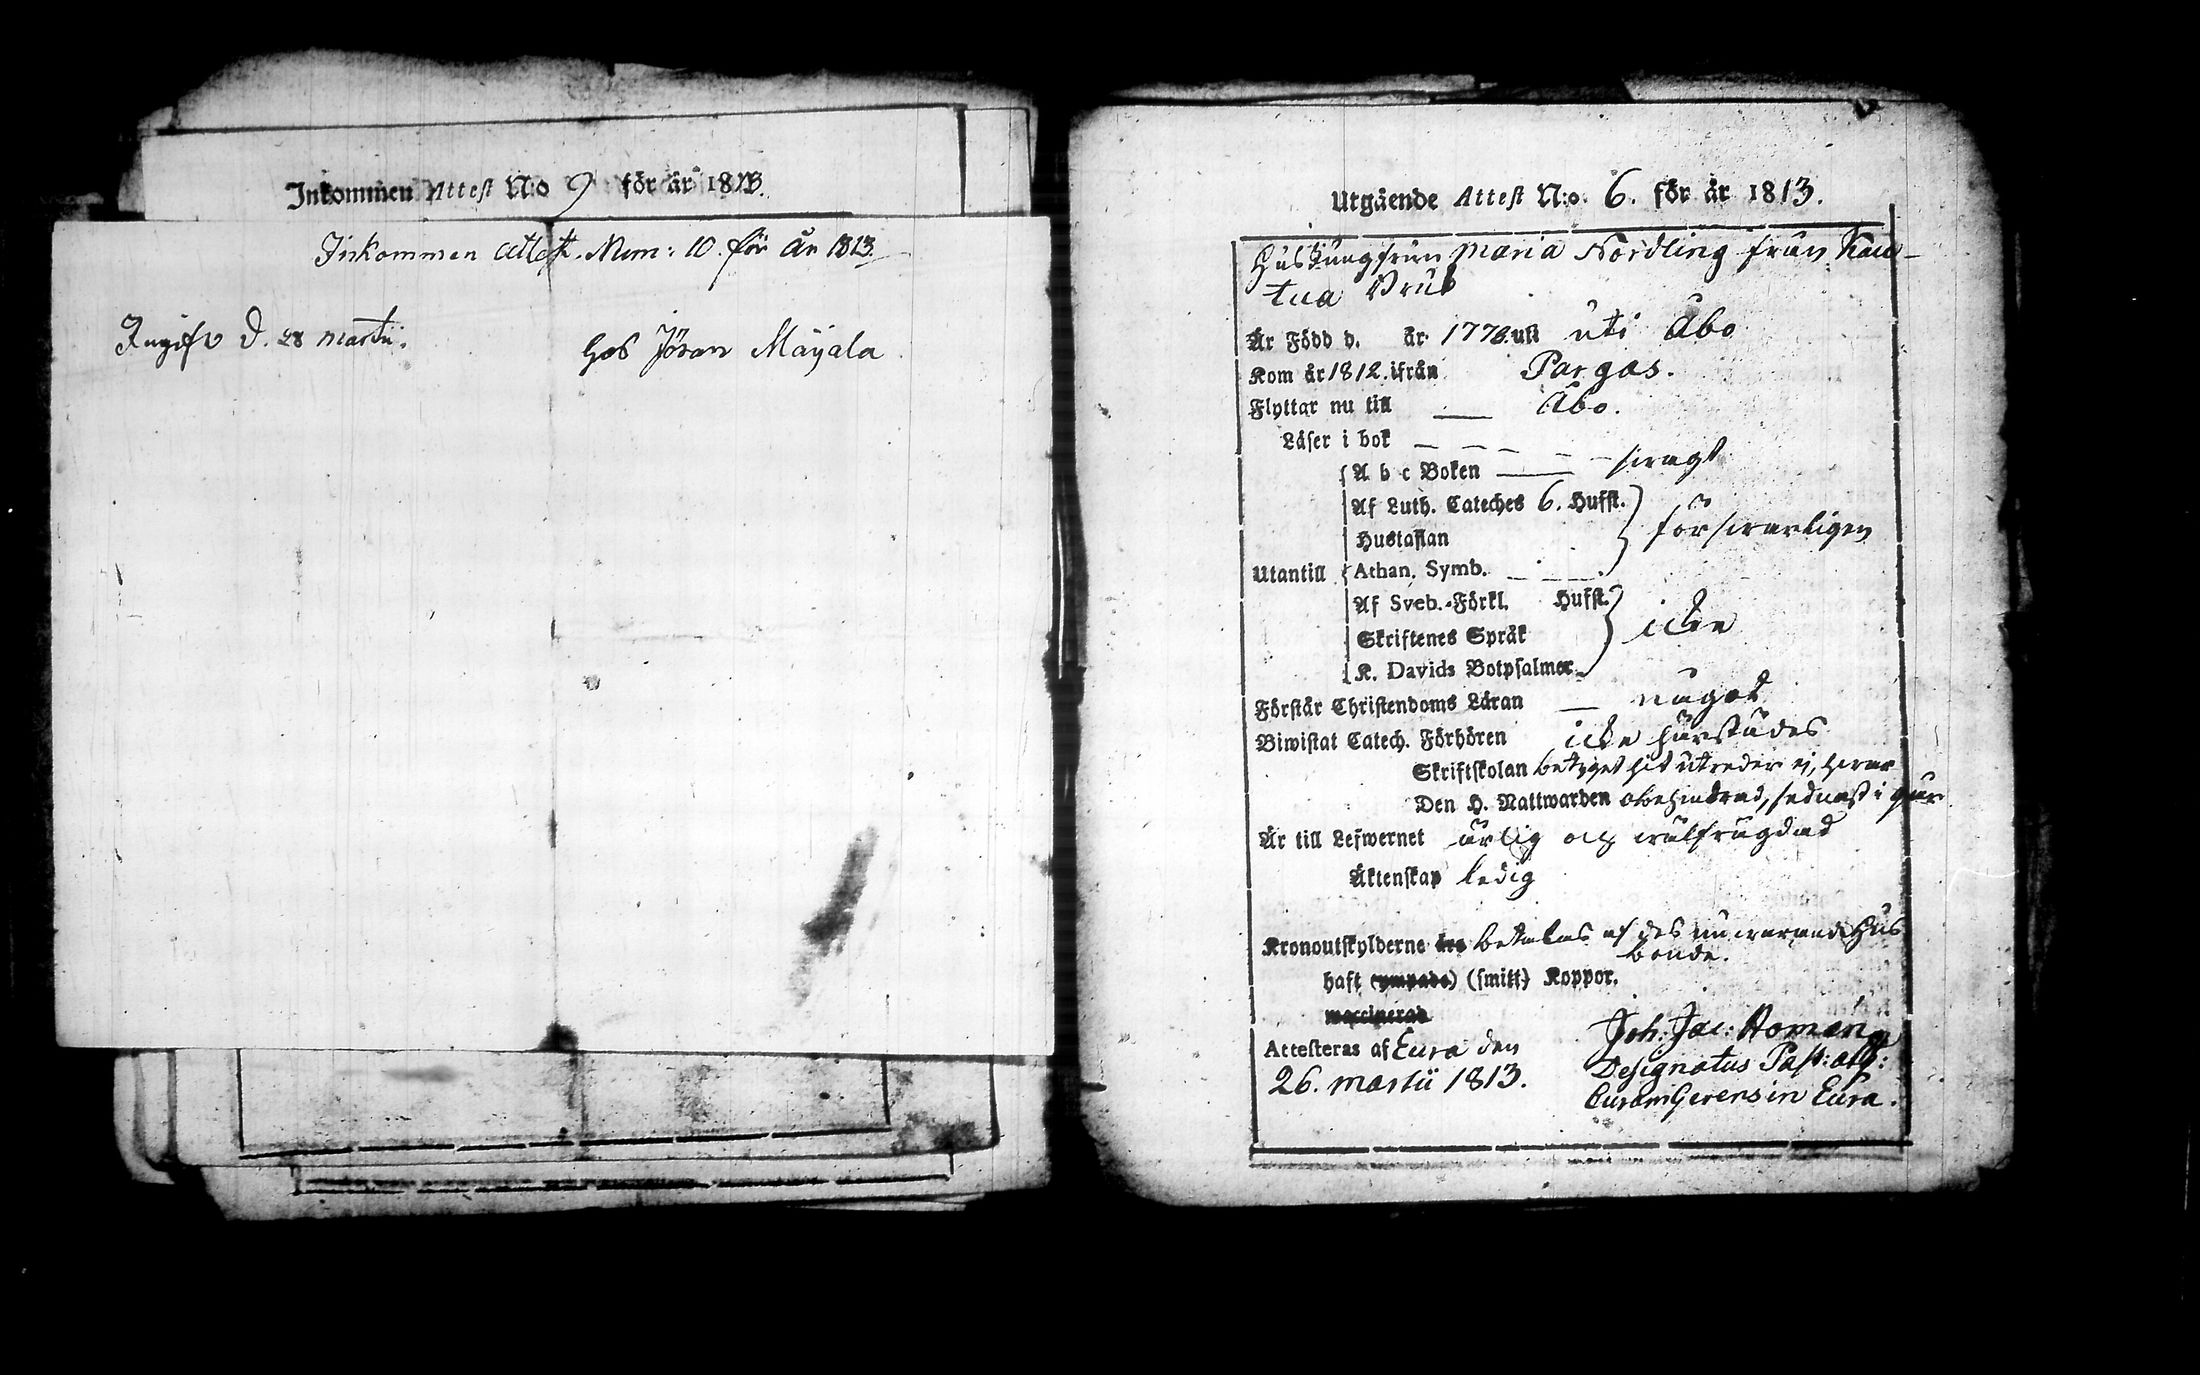 Inkommen Attest N:o 9 för år 1813.
Inkommen Attest. Num: 10. för År 1813.
Ingifv d. 28 Martii.
hos Jöran Mäyälä
Utgående Attest N:o. 6. för år 1813.
Husjungfrun Maria Nordling från Kau-
tua Bruk
Är Född d. år 1778 uti Åbo
Kom år 1812. ifrån Pargas.
Flyttar nu till Åbo.
Läser i bok
A b c Boken svagt
Af Luth. Cateches 6. Hufst.
försvarligen
Hustaflan
Utantill Athan. Symb.
Af Sveb. Förkl. Hufst.
Skriftenes Språk icke
K. Davids Botpsalmer
Förstår Christendoms Läran något
Biwistat Catech. Förhören icke härstädes
Skriftskolan betyget hit utreder ej,
Den H. Nattwarden obehindrad, sednast i
Är till Lefwernet ärlig och wälfrägdad
Äktenskap ledig
Kronoutskylderne betalas af des nuvarande Hus
bonde.
haft (ympade) (smitt) Koppor.
vaccinerad
Attesteras af Eura den
26. Martii 1813.
Joh: Jac: Homén
Designatus Past: atq:
Curam Gerens in Eura.